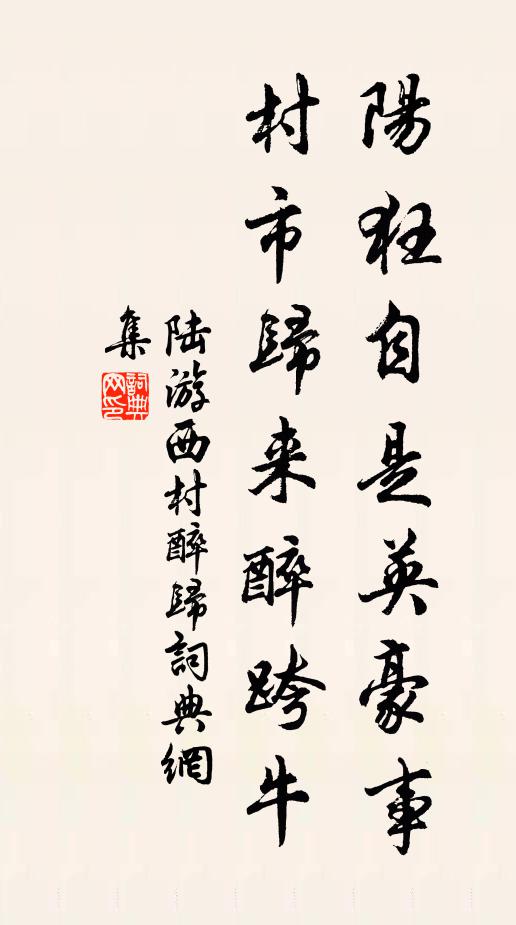 陽狂自是英豪事
村市歸来醉跨牛
陆游西村醉歸詞典網
集
詞典
网印